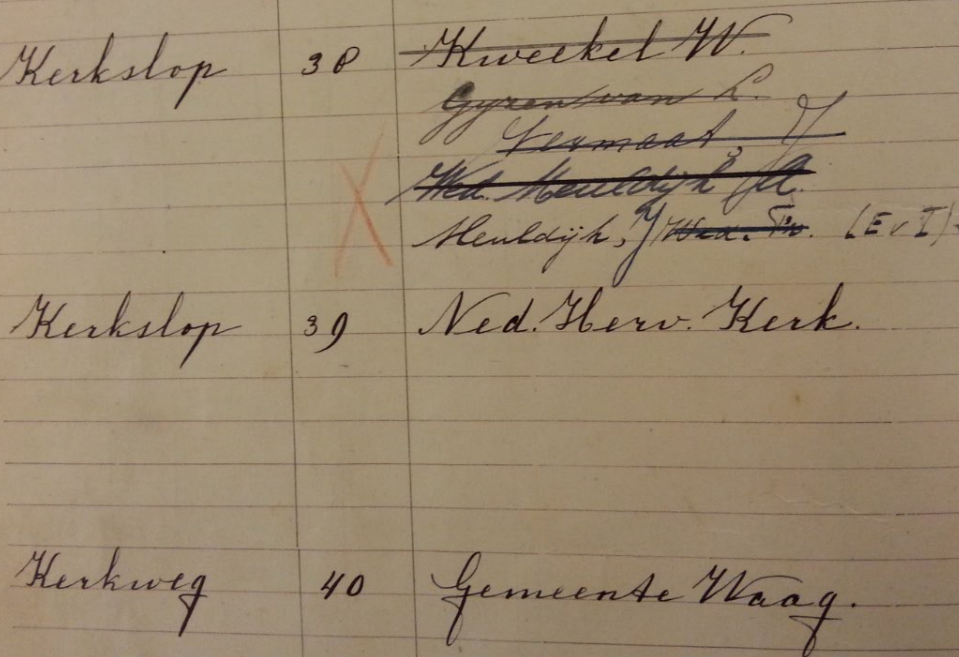 Kerkslop 38 Kweekel W.
Gyzen van L.
Vermaat, J
Wed. Meuldijk A.
Meuldijk, J Wed. (E v I)
Kerkslop 39 Ned. Herv. Kerk.
Kerkweg 40 Gemeente Waag.